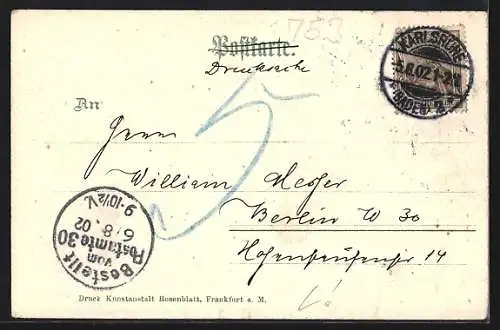 753
Postkarte.
Drucksache
KARLSRUHE
5.8.02.1-2N
(BADEN) 2
An
5
Herrn
William Messer
Berlin W 30
Hohenstaufenstr 14
Bestellt
vom
Postamte 30
6/8.02
9-10½V.
Druck Kunstanstalt Rosenblatt, Frankfurt a. M.